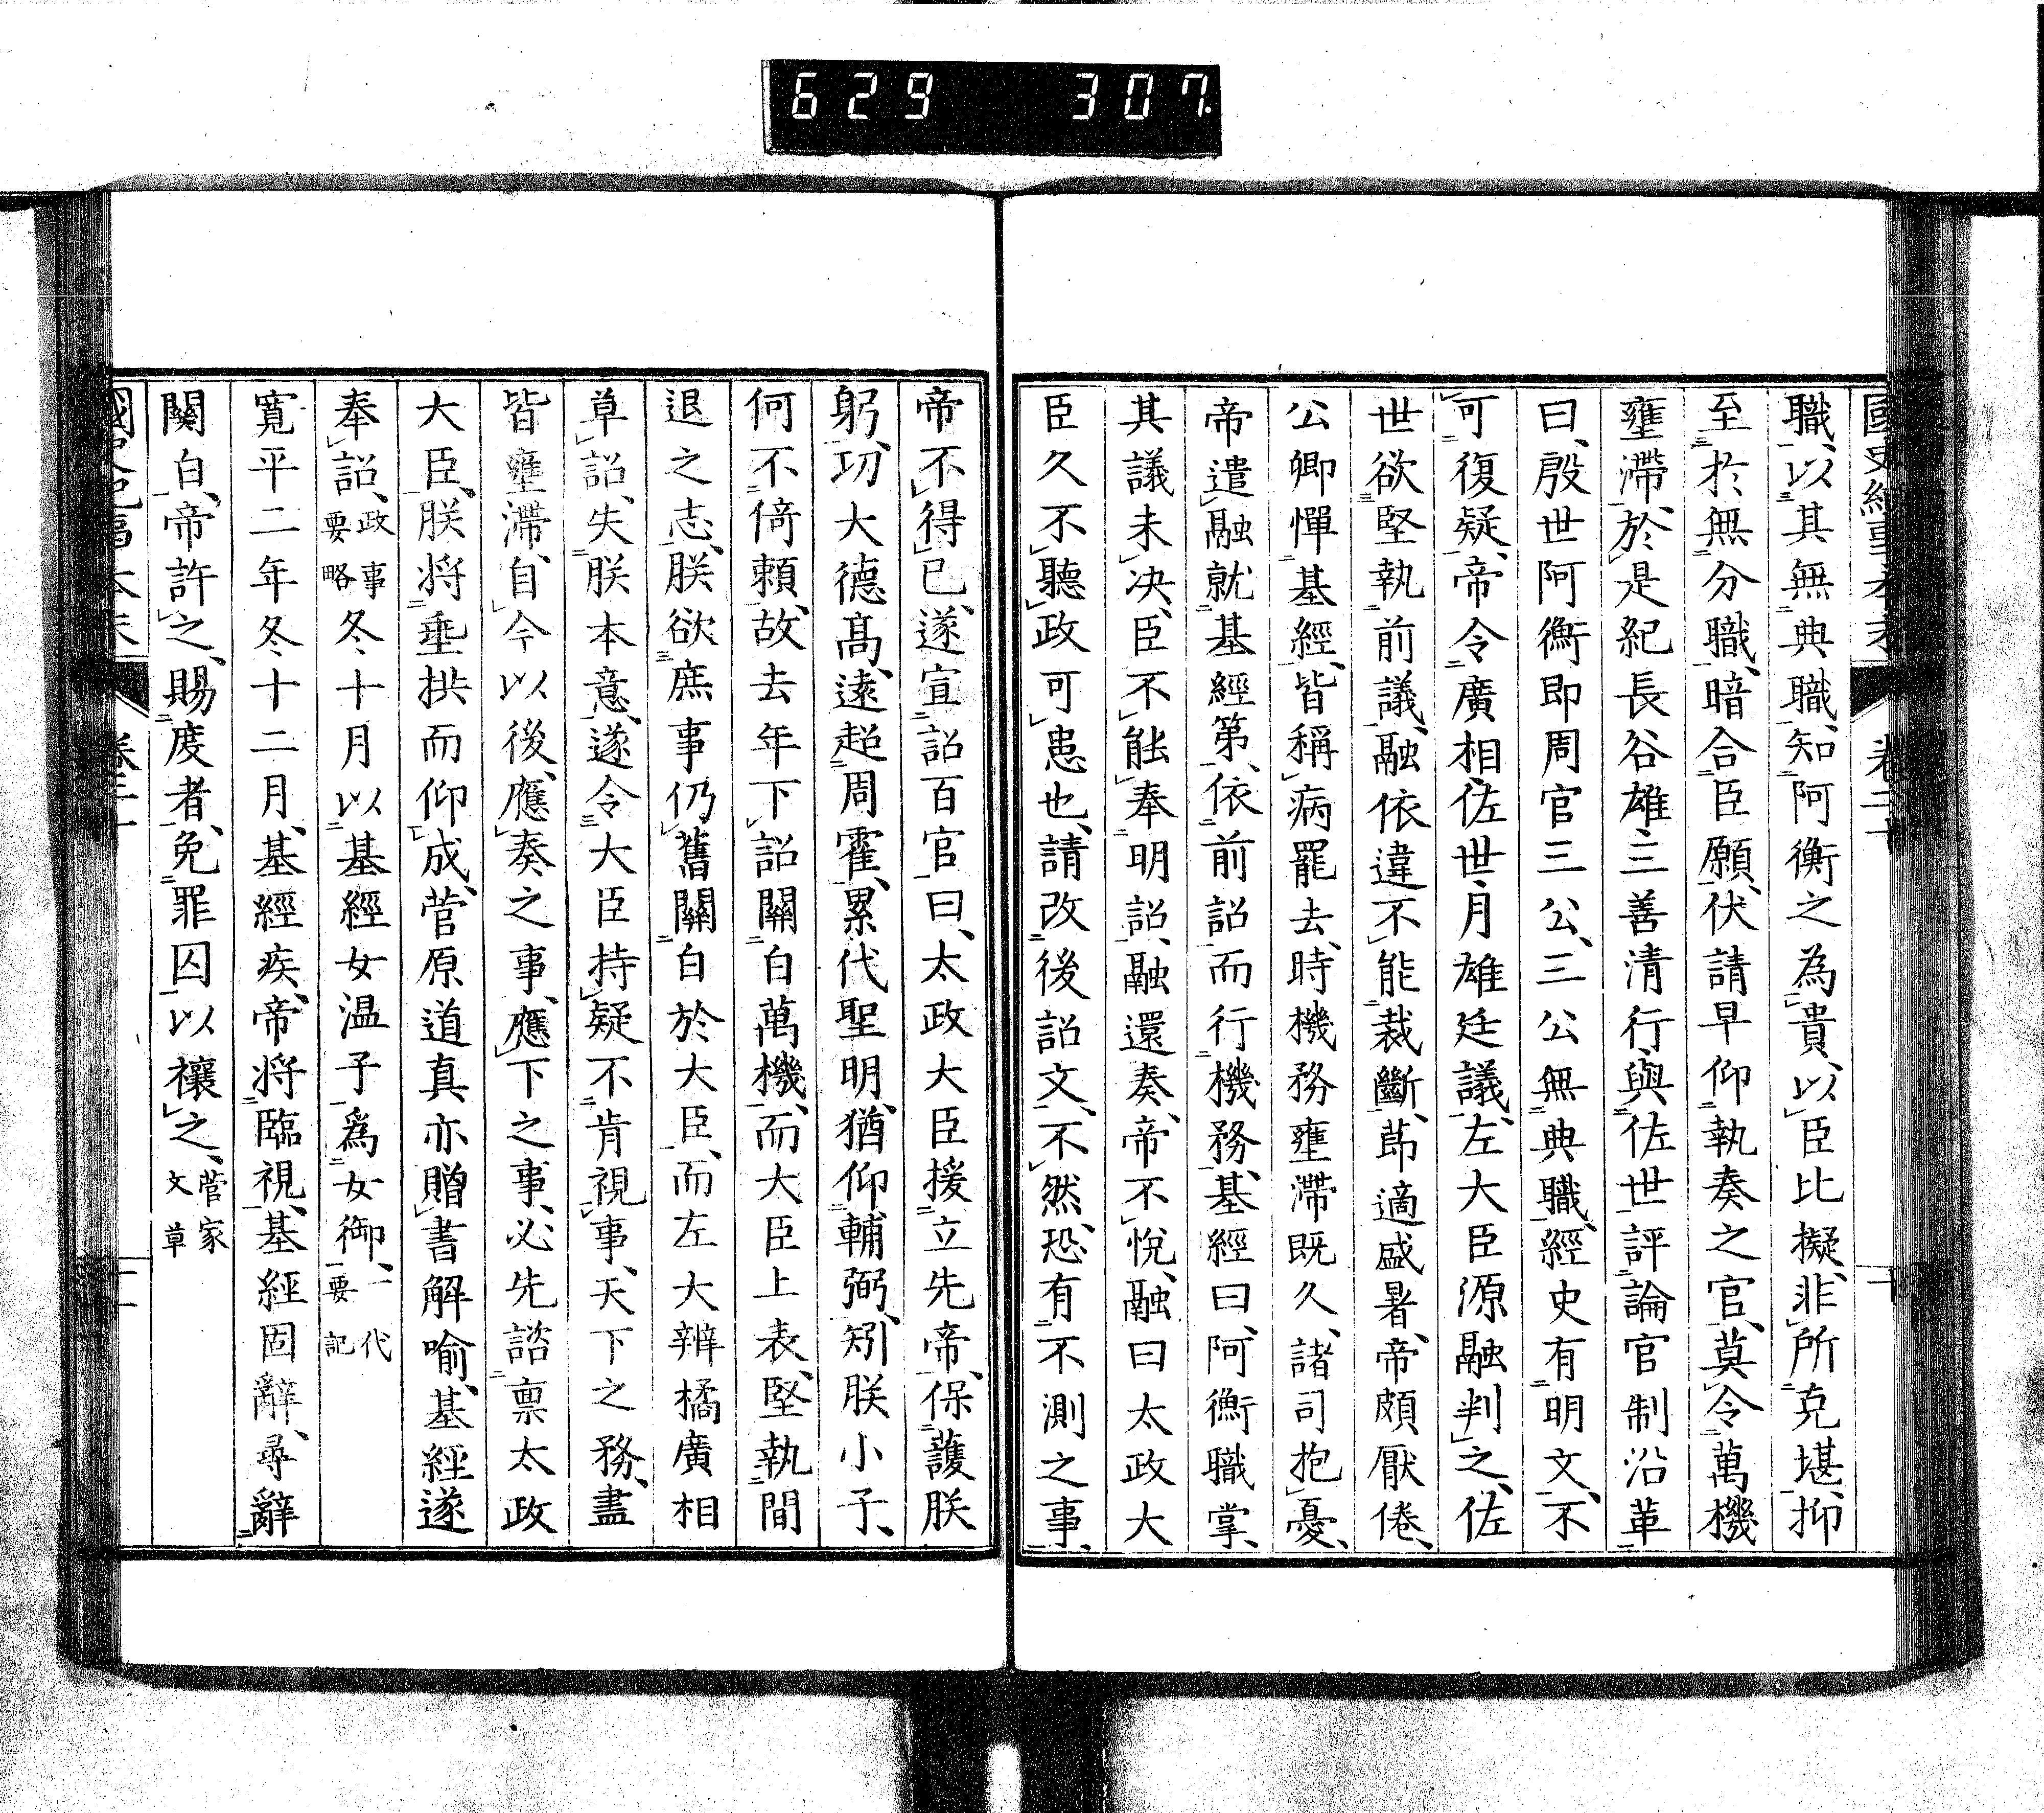 629 307
國史紀事本末 卷二十 十
職、以其無典職、知阿衡之為貴、以臣比擬、非所克堪、抑
至於無分職、暗合臣願、伏請早仰執奏之官、莫令萬機
壅滯、於是紀長谷雄三善清行與佐世評論官制沿革
曰、殷世阿衡即周官三公、三公無典職、經史有明文、不
可復疑、帝令廣相佐世月雄廷議、左大臣源融判之、佐
世欲堅執前議、融依違不能裁斷、莭適盛暑、帝頗厭倦、
公卿憚基經、皆稱病罷去、時機務壅滯既久、諸司抱憂、
帝遣融就基經第、依前詔而行機務、基經曰、阿衡職掌、
其議未决、臣不能奉明詔、融還奏、帝不悅、融曰太政大
臣久不聽政可患也、請改後詔文、不然、恐有不測之事、
帝不得已、遂宣詔百官曰、太政大臣援立先帝、保護朕
躬、功大德髙、遠超周霍、累代聖明、猶仰輔弼、矧朕小子、
何不倚賴、故去年下詔關白萬機、而大臣上表、堅執間
退之志、朕欲庶事仍舊關白於大臣、而左大辨橘廣相
草詔、失朕本意、遂令大臣持疑不肯視事、天下之務、盡
皆壅滯、自今以後、應奏之事、應下之事、必先諮禀太政
大臣、朕将垂拱而仰成、菅原道真亦贈書解喻、基經遂
奉詔、政事要略冬十月以基經女温子爲女御、一代要記
寛平二年冬十二月、基經疾、帝将臨視、基經固辭、尋辭
關白、帝許之、賜度者、免罪囚以禳之、菅家文草
國史紀事本末 卷二十 十一